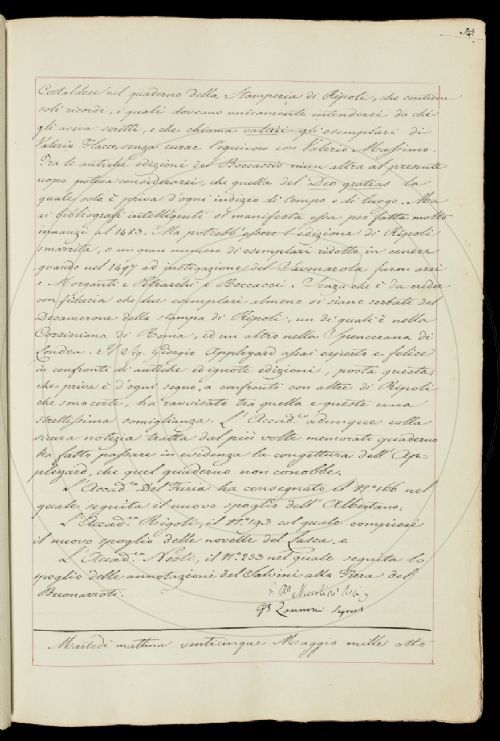 Cestaldese nel quaderno della Stamperia di Ripoli, che contiene
soli ricordi, i quali doveano unicamente intendersi da chi
gli aveva scritti, e che chiama valeri gli esemplari di
Valerio Flacco, senza curar l'equivoco con Valerio Massimo.
Tra le antiche edizioni del Boccaccio niun altra al presente
uopo poteva considerarsi, che quella del Deo gratias la
quale sola è priva d'ogni indizio di tempo e di luogo. Ma
ai bibliografi intelligenti si manifesta essa per fatta molto
innanzi al 1483. Ma potrebb' essere l'edizione di Ripoli
smarrita, o un gran numero di esemplari ridotto in cenere
quando nel 1497 ad instigazione del Savonarola furon arsi
e Morganti e Petrarchi e Boccacci. Senza che è da creder
con fiducia che due esemplari almeno si siano serbati del
Decamerone della stampa di Ripoli, un de' quali è nella
Corsiniana di Roma, ed un altro nella Spenceriana di
Londra. Il Sig. Giorgio Appleyard assai esperto e felice
in confronti di antiche ed ignote edizioni, posta questa,
che priva è d'ogni segno, a confronti con altre di Ripoli
che son certe, ha ravvisato tra quella e queste una
strettissima somiglianza. L'Accad.co adunque colla
sicura notizia tratta dal più volte memorato quaderno
ha fatto passare in evidenza la congettura dell' Ap=
pleyard, che quel quaderno non conobbe.
L'Accad.co Del Furia ha consegnato il N.o 166 nel
quale seguita il nuovo spoglio dell' Albertano,
L'Accad.co Rigoli, il N.o 193 col quale compiesi
il nuovo spoglio delle novelle del Lasca, e
L'Accad.co Nesti, il N.o 253 nel quale seguita lo
spoglio delle annotazione del Salvini alla Fiera del
Buonarroti.
Zannoni Segret
Martedì mattina venticinque Maggio mille otto